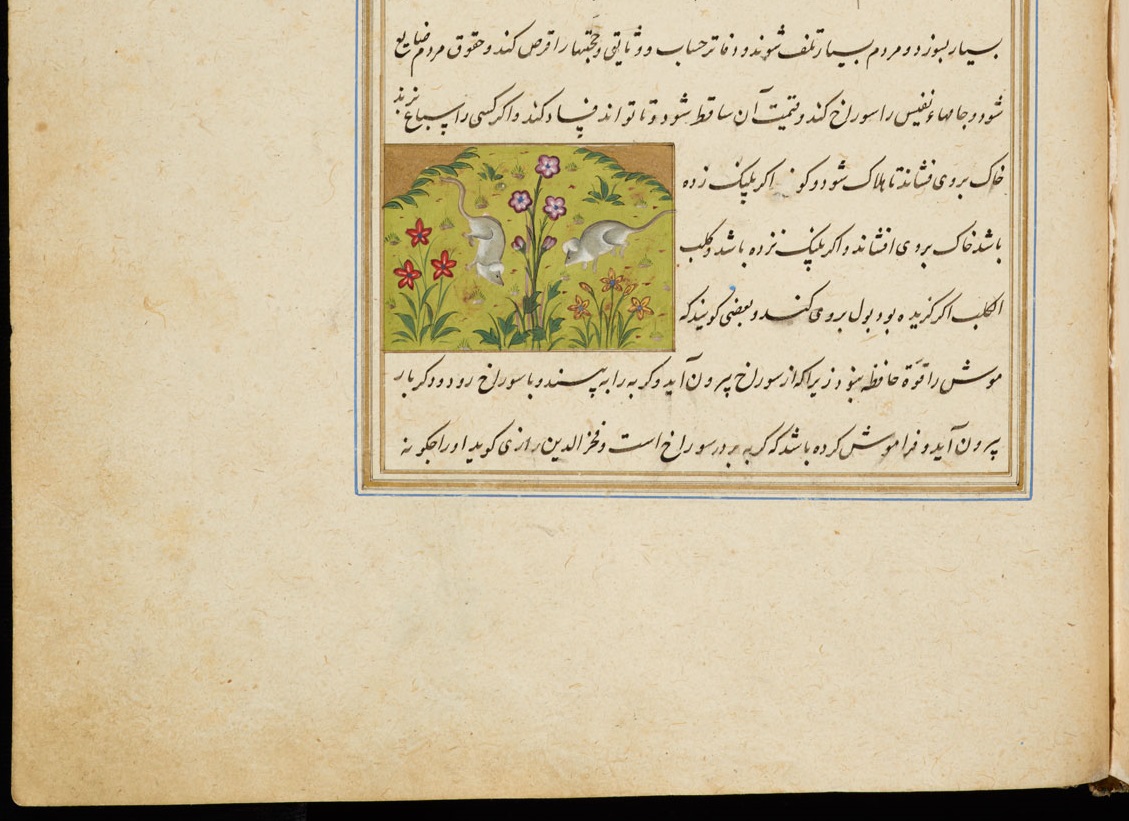 بسیار بسوزد و مردم بسیار تلف شوند و دفاتر حساب و وثایق و حجّتها را قرض کند و حقوق مردم ضایع
شود و جامهاء نفیس را سوراخ کند و قیمت آن ساقط شود و تا تواند فساد کند و اکر کسی را سباع
خاک بروی فشاند تا هلاک شود و اکر پلنک زده
باشد خاک بروی افشاند و اکر پلنک نزده باشد و کلب
الکلب اکر کزیده بود بول بروی کند و بعضی کویند که
موش را قوّة حافظه نبود زیرا که از سوراخ بیرون آید و کربه را به بیند و با سوراخ رود و دکر بار
بیرون آید و فراموش کرده باشد که کربه بر در سوراخ است و فخر الدین رازی کوید او را جکونه